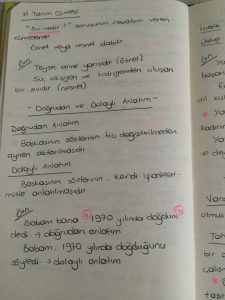 4) Tanım Cümlesi
"Bu nedir?" sorusunun cevabını veren
cümlelerdir
Öznel veya nesnel olabilir
Örn
Teyze anne yarısıdır (öznel)
Su, oksijen ve hidrojenden oluşan
bir sıvıdır (nesnel)
- Doğrudan ve Dolaylı Anlatım -
Doğrudan Anlatım
Başkasının sözlerinin hiç değiştirilmeden
aynen aktarılmasıdır
Dolaylı Anlatım
Başkasının sözlerinin, kendi ifadeleri-
mizle anlatılmasıdır
Örn
Babam bana "1970 yılında doğdum"
dedi → doğrudan anlatım
Babam, 1970 yılında doğduğunu
söyledi → dolaylı anlatım
Üslup